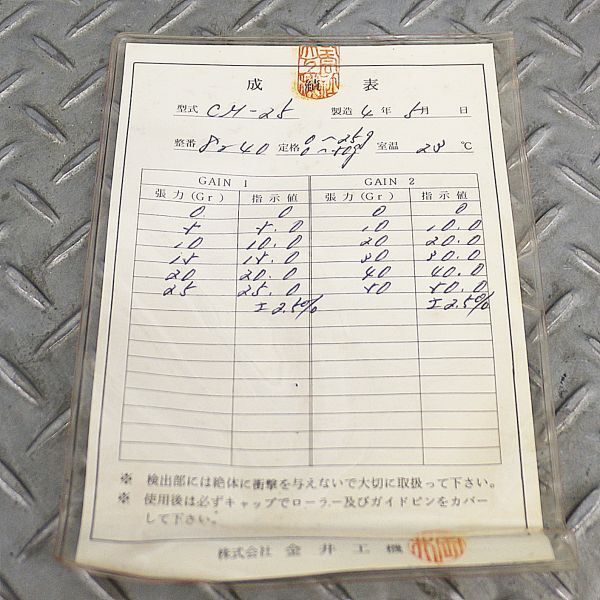 成績表
型式 CH-25 製造 4年 5月 日
整番 8240 定格 0~25g 0~50g 室温 28 ℃
GAIN 1 GAIN 2
張力(Gr) 指示値 張力(Gr) 指示値
0 0 0 0
5 5.0 10 10.0
10 10.0 20 20.0
15 15.0 30 30.0
20 20.0 40 40.0
25 25.0 50 50.0
±2.5% ±2.5%
※ 検出部には絶体に衝撃を与えないで大切に取扱って下さい。
※ 使用後は必ずキャップでローラー及びガイドピンをカバー
して下さい。
株式会社 金井工機